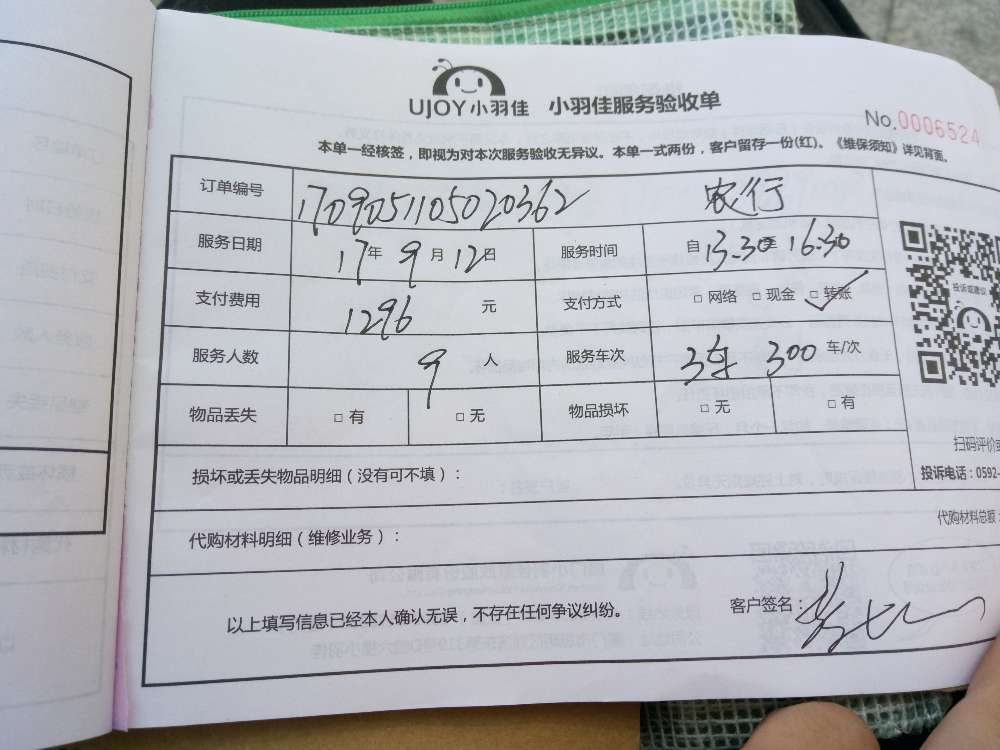 UJOY小羽佳 小羽佳服务验收单
No.0006524
本单一经核签，即视为对本次服务验收无异议。本单一式两份，客户留存一份(红)。《维保须知》详见背面。
订单编号 1709051105020362 农行
服务日期 17年 9月 12日 服务时间 自 13.30至 16.30
支付费用 1296 元 支付方式 □ 网络 □ 现金 □ 转账
投诉或建议
服务人数 9 人 服务车次 3车 300 车/次
物品丢失 □ 有 □ 无 物品损坏 □ 无 □ 有
扫码评价或
损坏或丢失物品明细（没有可不填）：
投诉电话：0592-
代购材料明细（维修业务）：
代购材料总额：
以上填写信息已经本人确认无误，不存在任何争议纠纷。 客户签名：